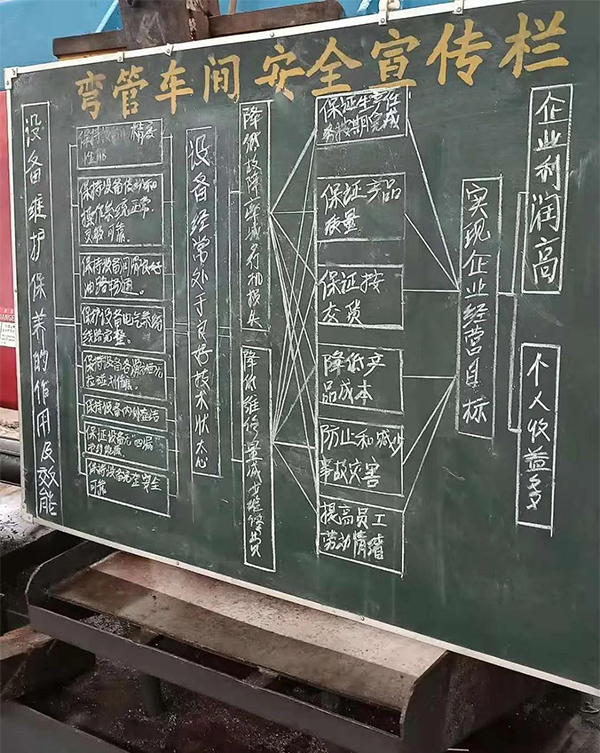 弯管车间安全宣传栏
设备维护保养的作用及效能
保持设备 精度
性能
保持设备传动和
操作系统正常、
灵敏可靠。
保持设备润滑良好
油路畅通。
保护设备电气系统
线路完整。
保持设备各滑动
保持设备内外整洁
保证设备无"四漏"
保持设备完全安全
可靠
设备经常处于良好技术状态
降低故障率减少停机损失
降低维修量减少维修费
保证生产任
务按期完成
保证产品
质量
保证按
交货
降低产
品成本
防止和减少
事故灾害
提高员工
劳动情绪
实现企业经营目标
企业利润高
个人收益多